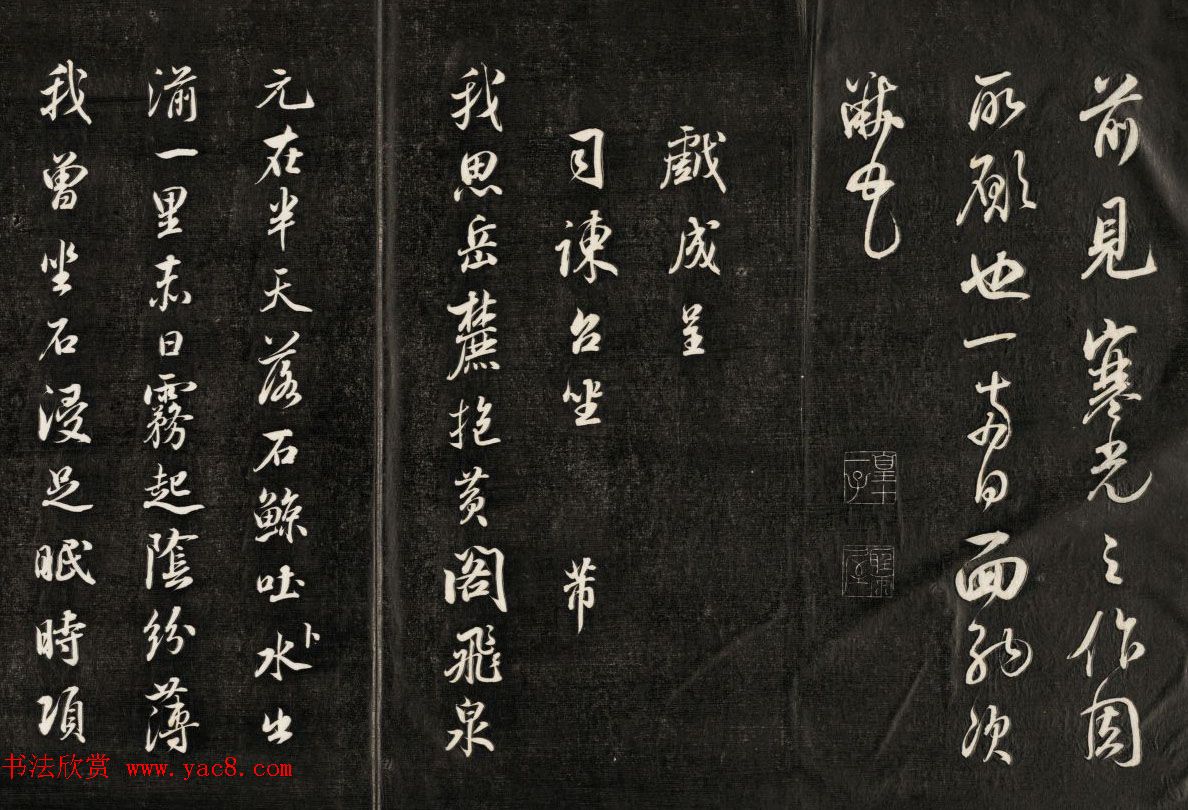 前見寒光之作固
所願也一兩日面納次
黻
皇十一子
戲成呈
司諫台坐 芾
我思岳麓抱黃閣飛泉
元在半天落石鯨吐水出
湔一里赤日霧起陰紛薄
我曾坐石浸足眠時項
书法欣赏 www.yac8.com